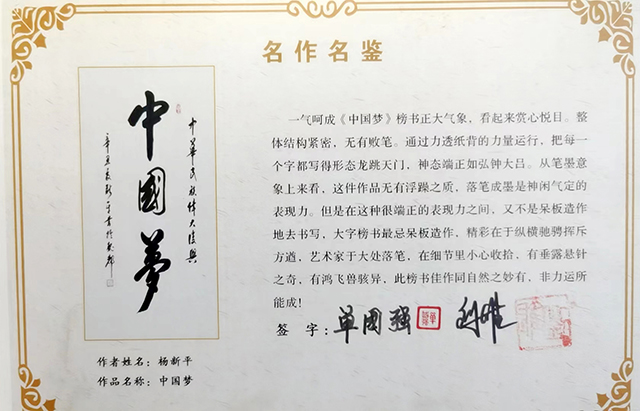 名作名鉴
中國夢
中華民族偉大復興
一气呵成《中国梦》榜书正大气象，看起来赏心悦目。整
体结构紧密，无有败笔。通过力透纸背的力量运行，把每一
个字都写得形态龙跳天门，神态端正如弘钟大吕。从笔墨意
象上来看，这件作品无有浮躁之质，落笔成墨是神闲气定的
表现力。但是在这种很端正的表现力之间，又不是呆板造作
地去书写，大字榜书最忌呆板造作，精彩在于纵横驰骋挥斥
方遒，艺术家于大处落笔，在细节里小心收拾，有垂露悬针
之奇，有鸿飞兽骇异，此榜书佳作同自然之妙有，非力运所
能成！
签 字：單國強
作者姓名：杨新平
作品名称：中国梦